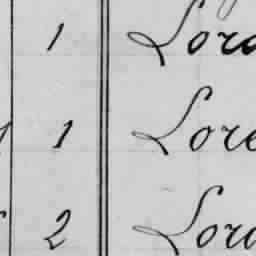 1 Lord
1 Lore
2 Lord